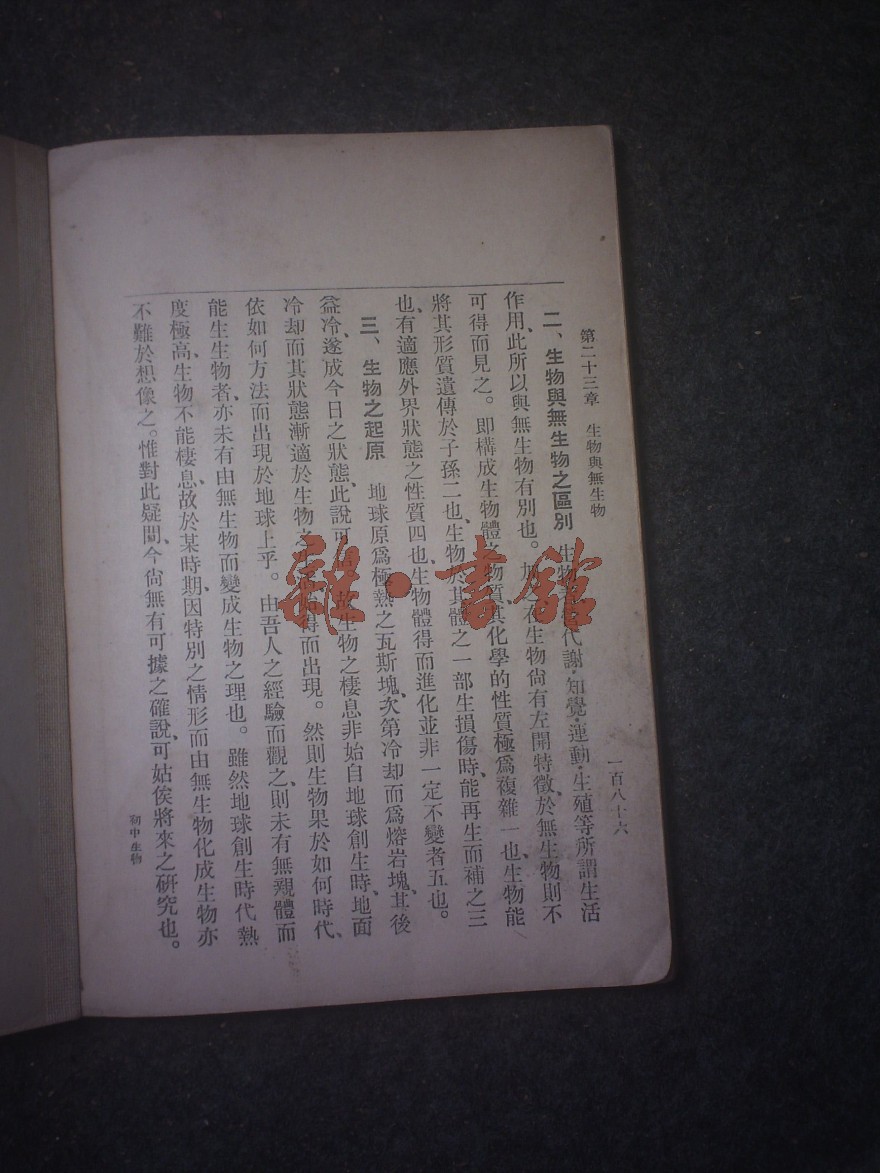 第二十三章　生物與無生物　一百八十六
二、生物與無生物之區別　生物代謝・知覺・運動・生殖等所謂生活
作用、此所以與無生物有別也。在生物尙有左開特徵、於無生物則不
可得而見之。卽構成生物體之物質、其化學的性質極爲複雜一也、生物能
將其形質遺傳於子孫二也、生物於其體之一部生損傷時、能再生而補之三
也、有適應外界狀態之性質四也、生物體得而進化並非一定不變者五也。
三、生物之起原　地球原爲極熱之瓦斯塊、次第冷却而爲熔岩塊、其後
益冷、遂成今日之狀態、此說可故生物之棲息非始自地球創生時、地面
冷却而其狀態漸適於生物之始得而出現。然則生物果於如何時代、
依如何方法而出現於地球上乎。由吾人之經驗而觀之、則未有無親體而
能生生物者、亦未有由無生物而變成生物之理也。雖然地球創生時代熱
度極高、生物不能棲息、故於某時期、因特別之情形而由無生物化成生物亦
不難於想像之。惟對此疑問、今尙無有可據之確說、可姑俟將來之研究也。
初中生物
雜・書館